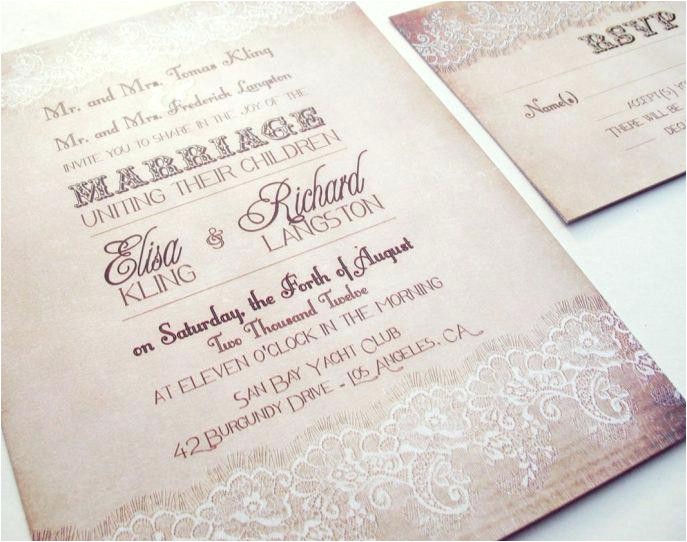 Mr. and Mrs. Tomas Kling
Mr. and Mrs. Frederick Langston
INVITE YOU TO SHARE IN THE JOY OF THE
MARRIAGE
UNITING THEIR CHILDREN
Elisa & Richard
KLING LANGSTON
on Saturday, the Forth of August
Two Thousand Twelve
AT ELEVEN O'CLOCK IN THE MORNING
SAN BAY YACHT CLUB
42 BURGUNDY DRIVE - LOS ANGELES, CA
RSVP
Name(s)
ACCEPT(S)
THERE WILL BE